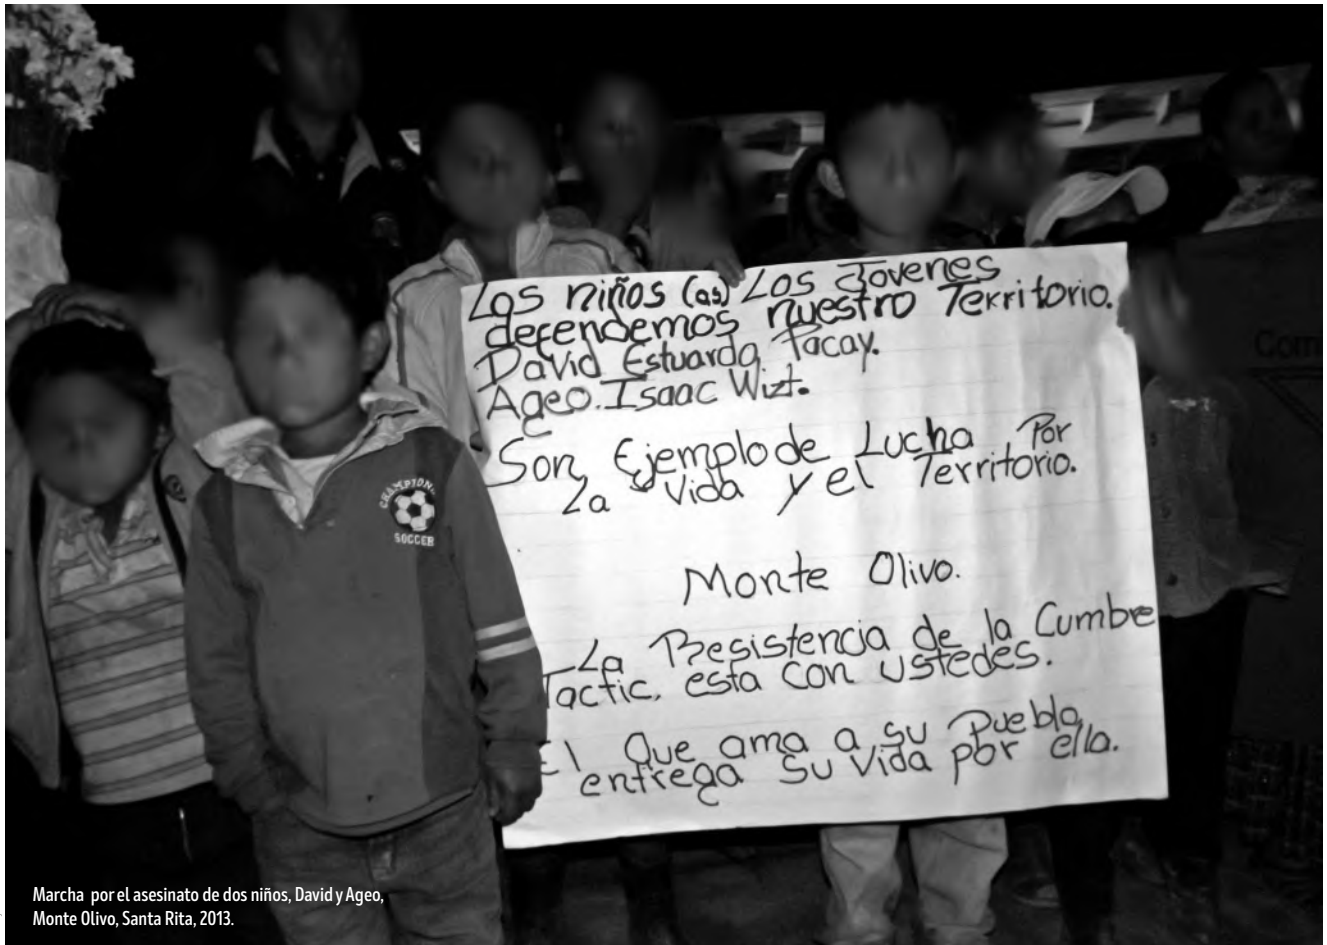 Los niños (as) Los Jovenes
defendemos nuestro Territorio.
David Estuardo Pacay.
Ageo. Isaac Wizt.
Son Ejemplo de Lucha Por
La Vida y el Territorio.
Monte Olivo.
La Resistencia de la Cumbre
Tactic, esta con ustedes.
El Que ama a su Pueblo
entrega su vida por ella.
CHAMPION
SOCCER
Com
Marcha por el asesinato de dos niños, David y Ageo,
Monte Olivo, Santa Rita, 2013.